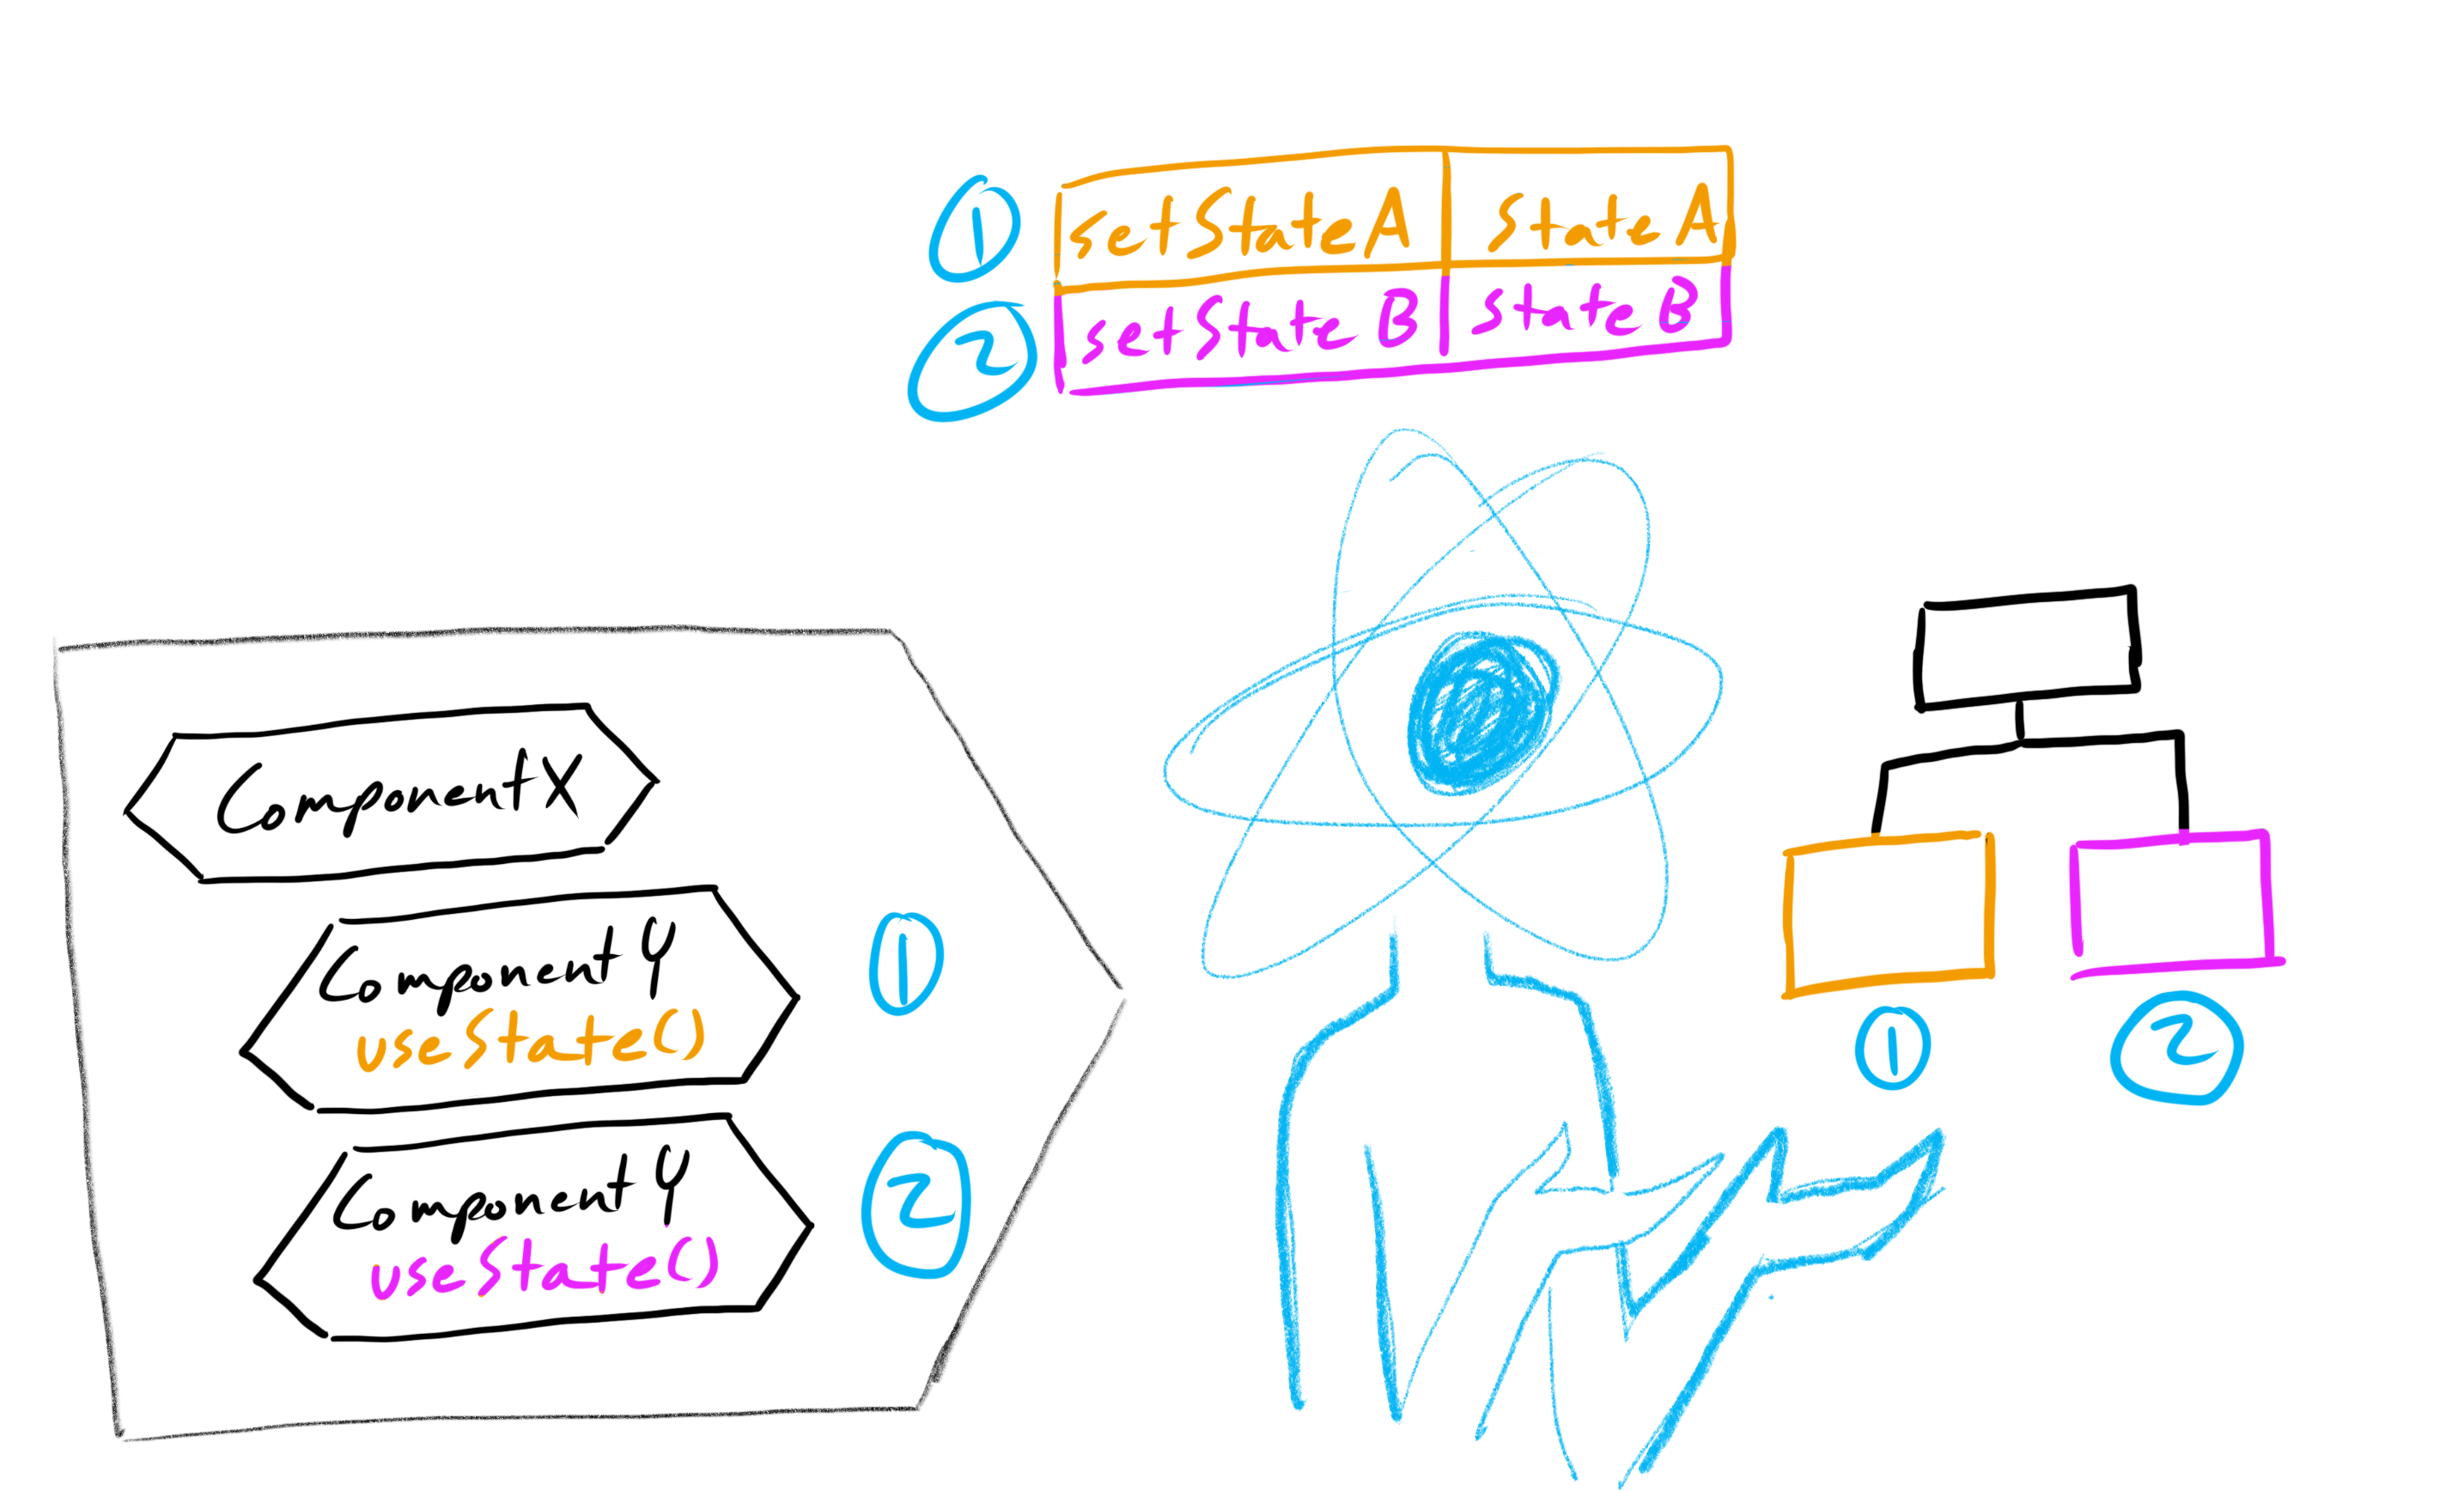 1 setStateA StateA
2 setState B State B
ComponentX
Component Y
useState()
1
Component Y
useState()
2
1 2